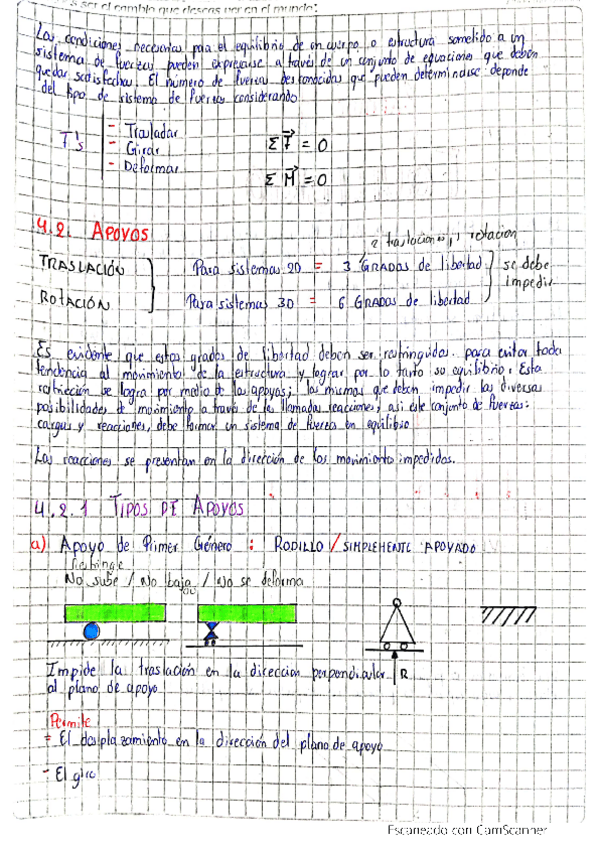 ser el cambio que deseas ver en el mundo:
Las condiciones necesarias para el equilibrio de un cuerpo o estructura sometido a un
sistema de fuerzas pueden expresarse a través de un conjunto de ecuaciones que deben
quedar satisfechas. El número de fuerzas desconocidas que pueden determinarse depende
del tipo de sistema de fuerzas considerando.
T's
- Trasladar
- Girar
- Deformar
Σ F = 0
Σ M = 0
4.2. APOYOS
2 traslaciones, 1 rotacion
TRASLACIÓN
Para sistemas 2D = 3 GRADOS de libertad
se debe
impedir
ROTACIÓN
Para sistemas 3D = 6 GRADOS de libertad
Es evidente que estos grados de libertad deben ser restringidos para evitar toda
tendencia al movimiento de la estructura y lograr por lo tanto su equilibrio. Esta
restricción se logra por medio de los apoyos; los mismos que deben impedir las diversas
posibilidades de movimiento a través de las llamadas reacciones; así este conjunto de fuerzas:
cargas y reacciones, debe formar un sistema de fuerza en equilibrio
Las reacciones se presentan en la dirección de los movimiento impedidos.
4.2.1 TIPOS DE APOYOS
a) Apoyo de Primer Género : RODILLO / SIMPLEMENTE APOYADO
Restringe
No sube / No baja / No se deforma
R
Impide la traslación en la direccion perpendicular
al plano de apoyo
Permite
- El desplazamiento en la dirección del plano de apoyo
- El giro
Escaneado con CamScanner